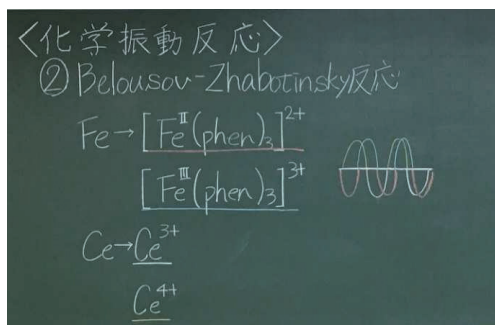 〈化学振動反応〉
②Belousov-Zhabotinsky反応
Fe→[Feᴵᴵ(phen)₃]²⁺
[Feᴵᴵᴵ(phen)₃]³⁺
Ce→Ce³⁺
Ce⁴⁺